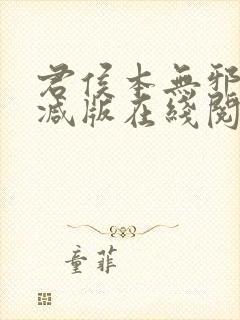 君侯本無邪
減版在綫閱
童菲